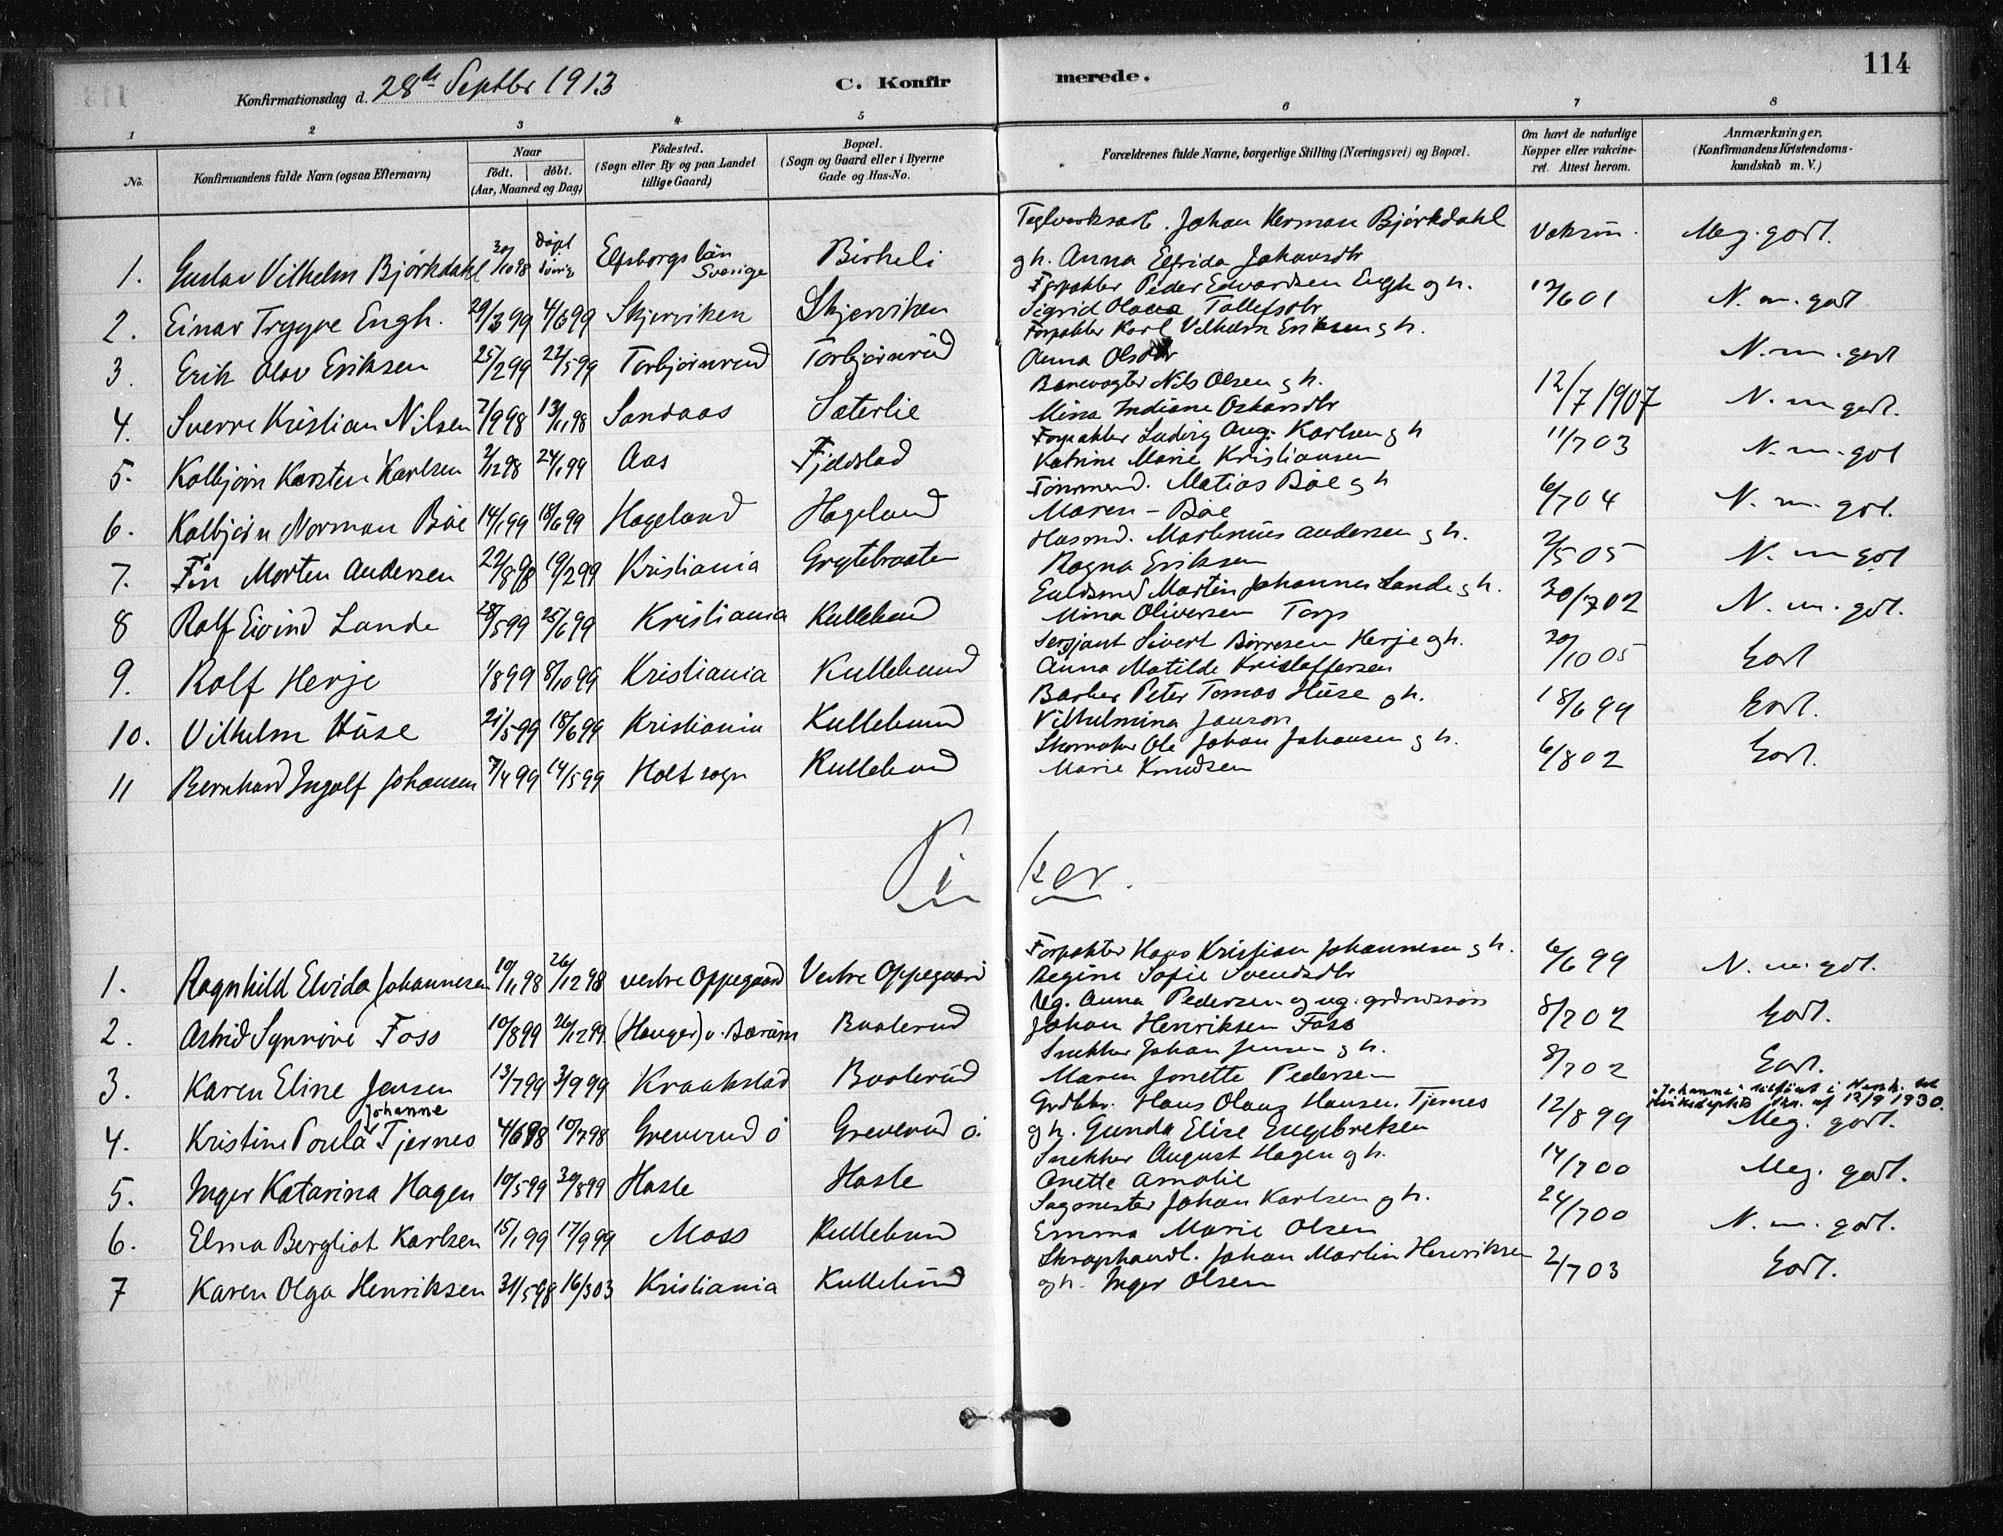 114
Konfirmationsdag d. 28de Septbr 1913 C. Konfirmerede.
1 2 3 4 5 6 7 8
No. Konfirmandens fulde Navn (ogsaa Efternavn) Naar født. døbt. (Aar, Maaned og Dag) Fødested. (Sogn eller By og paa Landet tillige Gaard) Bopæl. (Sogn og Gaard eller i Byerne Gade og Hus-No. Forældrenes fulde Navne, borgerlige Stilling (Næringsvei) og Bopæl. Om havt de naturlige Kopper eller vakcineret. Attest herom. Anmærkninger. (Konfirmandens Kristendomskundskab m. V.)
1. Gustav Vilhelm Björkdahl 30/10 98 Döpt Elfsborgs län Sverige Birkeli Teglverksarb. Johan Herman Björkdahl Vaksin. Meg. godt.
og h. Anna Elfrida Johansdtr
2. Einar Trygve Engh. 29/3 99 4/6 99 Skjerviken Skjerviken Forpakter Peder Edvardsen Engh og h. 17/6 01 N. m. godt
Sigrid Olava Tollefsdtr
3. Erik Olav Eriksen 25/2 99 22/5 99 Torbjørnrud Torbjørnrud Forpakter Karl Vilhelm Eriksen g h. N. m. godt
Anna Olsdtr
4. Sverre Kristian Nilsen 7/9 98 13/11 98 Sandaas Sæterlie Banevogter Nils Olsen g h. 12/7 1907 N. m godt.
Mina Indiane Oskarsdtr
5. Kolbjørn Karsten Karlsen 2/12 98 24/1 99 Aas Fjeldstad Forpakter Ludvig Aug. Karlsen g h 11/7 03 N. m. got
Katrine Marie Kristiansen
6. Kolbjørn Norman Bøe 14/1 99 18/6 99 Hageland Hageland Tømmermd. Matias Bøe g h 6/7 04 N. m. got.
Maren – Bøe
7. Fin Morten Andersen 22/8 98 19/2 99 Kristiania Grytebraaten Husmd. Martinius Andersen g h. 2/5 05 N. m got
Ragna Eriksen
8 Rolf Eivind Lande 28/5 99 25/6 99 Kristiania Kullebund Guldsmed Martin Johannes Lande g h. 30/7 02 N. m. got.
Mina Oliversen Torp
9. Rolf Herje 1/8 99 8/10 99 Kristiania Kullebund Sersjant Sivert Børresen Herje og h. 20/10 05 Godt
Anna Matilde Kristoffersen
10. Vilhelm Huse 21/5 99 18/6 99 Kristiania Kullebund Barber Peter Tomas Huse g h. 18/6 99 Godt.
Vilhelmina Janson
11 Bernhard Ingolf Johansen 7/4 99 14/5 99 Holt sogn Kullebund Skomaker Ole Johan Johansen g h. 6/8 02 Godt.
Marie Knudsen
Piker.
1. Ragnhild Elvida Johannesen 10/11 98 26/12 98 vestre Oppegaard Vestre Oppegaard Forpakter Hans Kristian Johannesen g h. 6/6 99 N. m. gdt.
Regine Sofie Svendsdtr
2. Astrid Synnøve Foss 10/8 99 26/12 99 (Hauger) v. Bærum Baalerud Ug. Anna Pedersen og ug. grdmdssøn 8/7 02 Godt.
Johan Henriksen Foss
3. Karen Eline Jensen 13/7 99 3/9 99 Kraakstad Baalerud Snekker Johan Jensen g h. 8/7 02 Godt.
Maren Jonette Pedersen
4. Kristine Poula Johanne Tjernes 4/6 98 10/7 98 Greverud ö Greverud ö. Grdbkr. Hans Olaus Hansen Tjernes 12/8 99 "Johanne" tilføiet i Henh. til Kirkedeptets skr. af 12/9 1930. Meg. godt.
og h. Gunda Elise Engebretsen
5. Inger Katarina Hagen 10/5 99 20/8 99 Hasle Hasle Snekker August Hagen g h. 14/7 00 Meg. godt.
Anette Amalie
6. Elma Bergliot Karlsen 15/1 99 17/9 99 Moss Kullebund Sagmester Johan Karlsen g h. 24/7 00 N. m. godt.
Emma Marie Olsen
7 Karen Olga Henriksen 31/5 98 16/3 03 Kristiania Kullebund Skraphandl. Johan Martin Henriksen 2/7 03 Godt.
og h. Inger Olsen